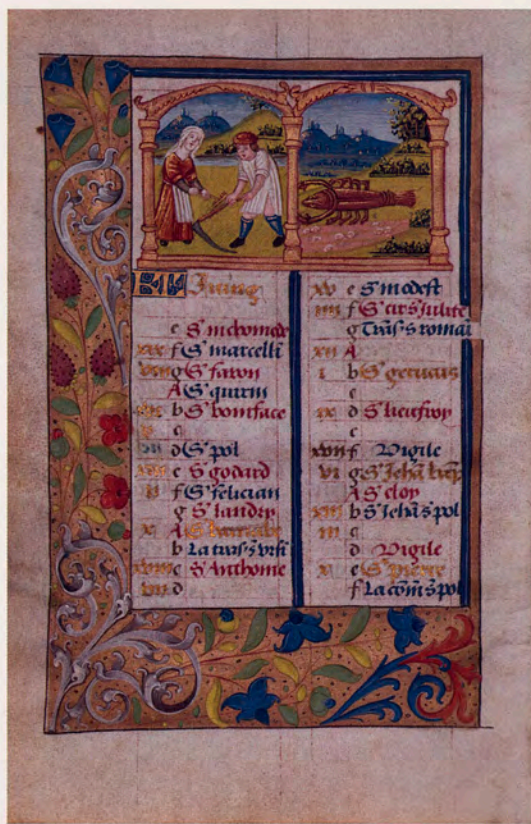 KL Juing
e S' nichomede
xix f S' marcelli
viii g S' faron
A S' quirin
xvi b S' boniface
v c
d S' pol
xiii e S' godard
ii f S' felician
g S' landry
x A S' barnabe
b La trās s'
xviii c S' Anthoine
vii d
xv e S' modest
iiii f S' cir s' Julite
g Trās s romai
xii A
i b S' geruais
c
ix d S' lieufroy
e
xvii f Vigile
vi g S' Jehā bap
A S' eloy
xiiii b S' Jehā s' pol
iii c
d Vigile
xi e S' pierre
f La cōm s' pol